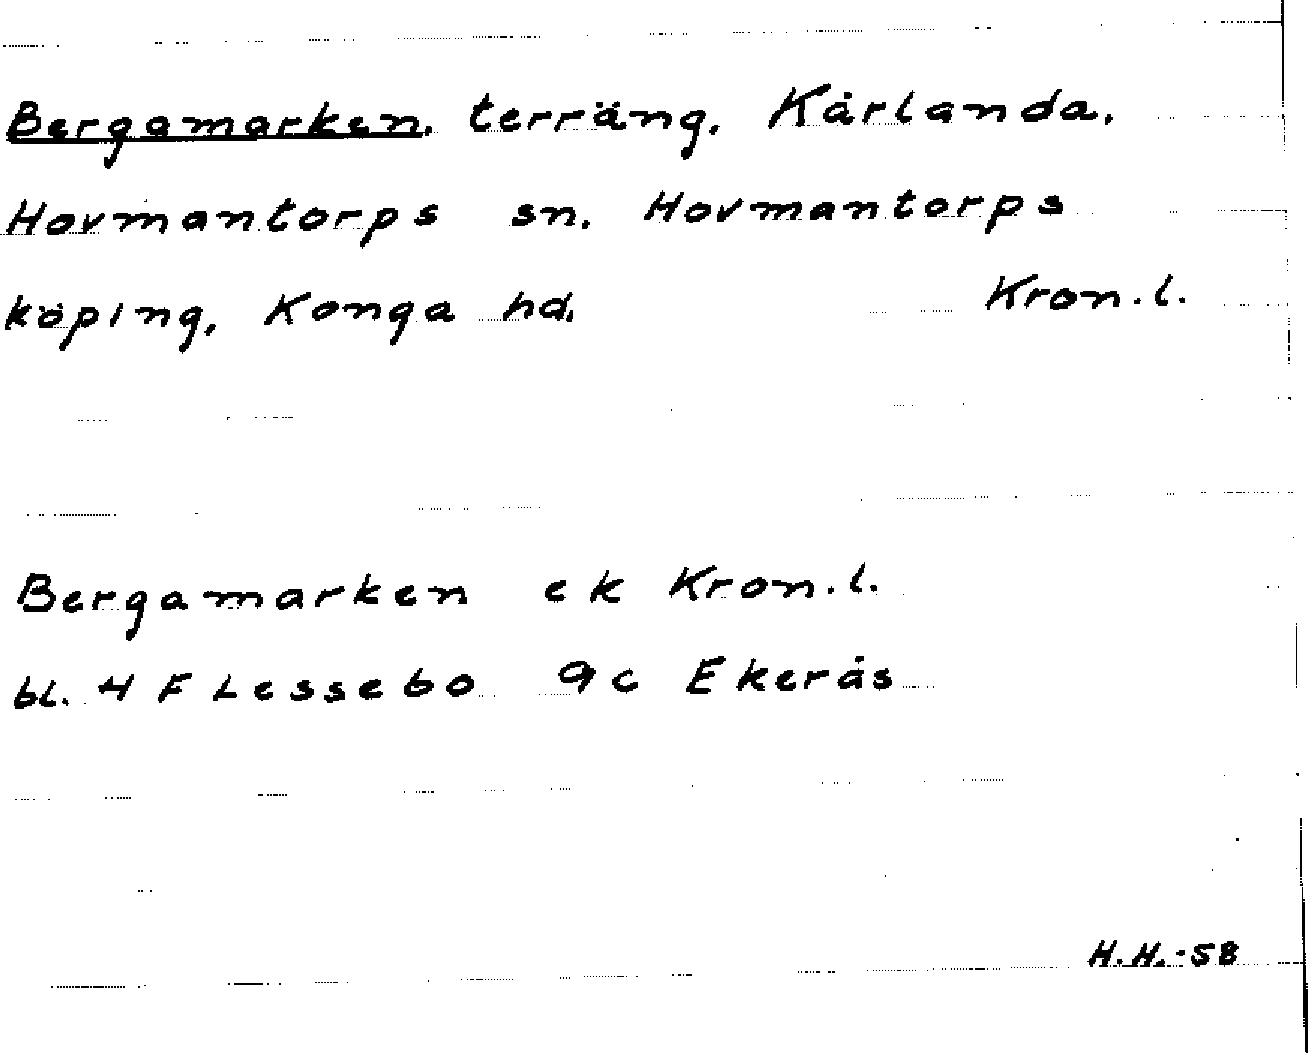 Bergamarken, terräng, Kårlanda,
Hovmantorps sn. Hovmantorps
köping, Konga hd. Kron.l.
Bergamarken ek Kron.l.
bl. 4 F Lessebo 9c Ekerås
H.H.-58